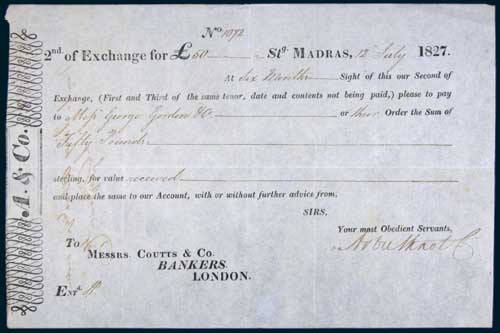 No. 1072
2nd. of Exchange for £50 Stg. MADRAS, 12 July 1827.
At Six Months Sight of this our Second of
Exchange, (First and Third of the same tenor, date and contents not being paid,) please to pay
to Messs. George Gordon & Co. or their Order the Sum of
Fifty Pounds
sterling, for value received
and place the same to our Account, with or without further advice from.
SIRS,
Your most Obedient Servants,
Arbuthnot & Co
To
MESSRS. COUTTS & CO.
BANKERS.
LONDON.
ENTd.
A. & Co.